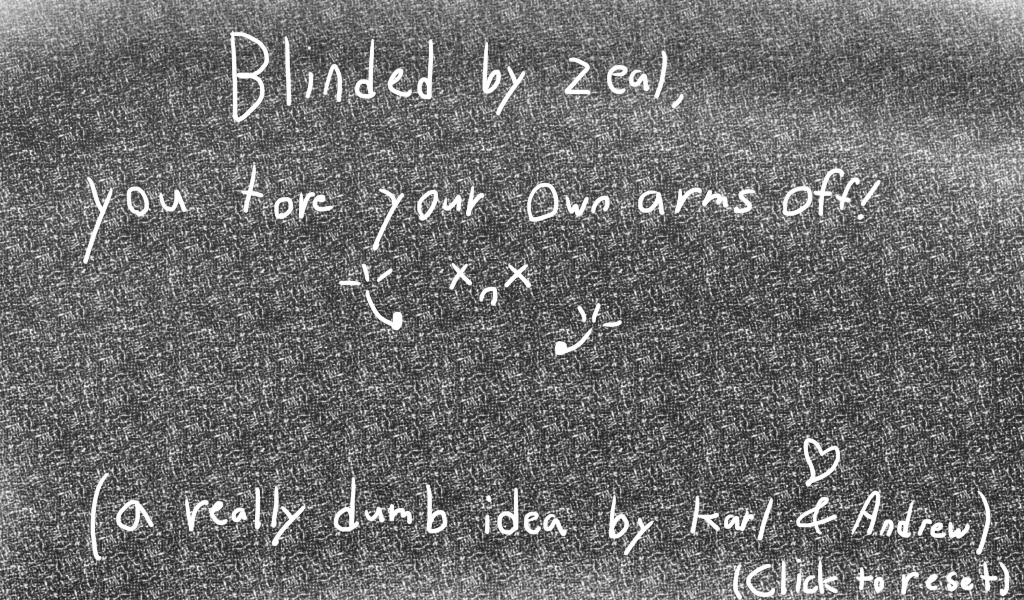 Blinded by zeal,
you tore your own arms off!
(a really dumb idea by Karl & Andrew)
(Click to reset)